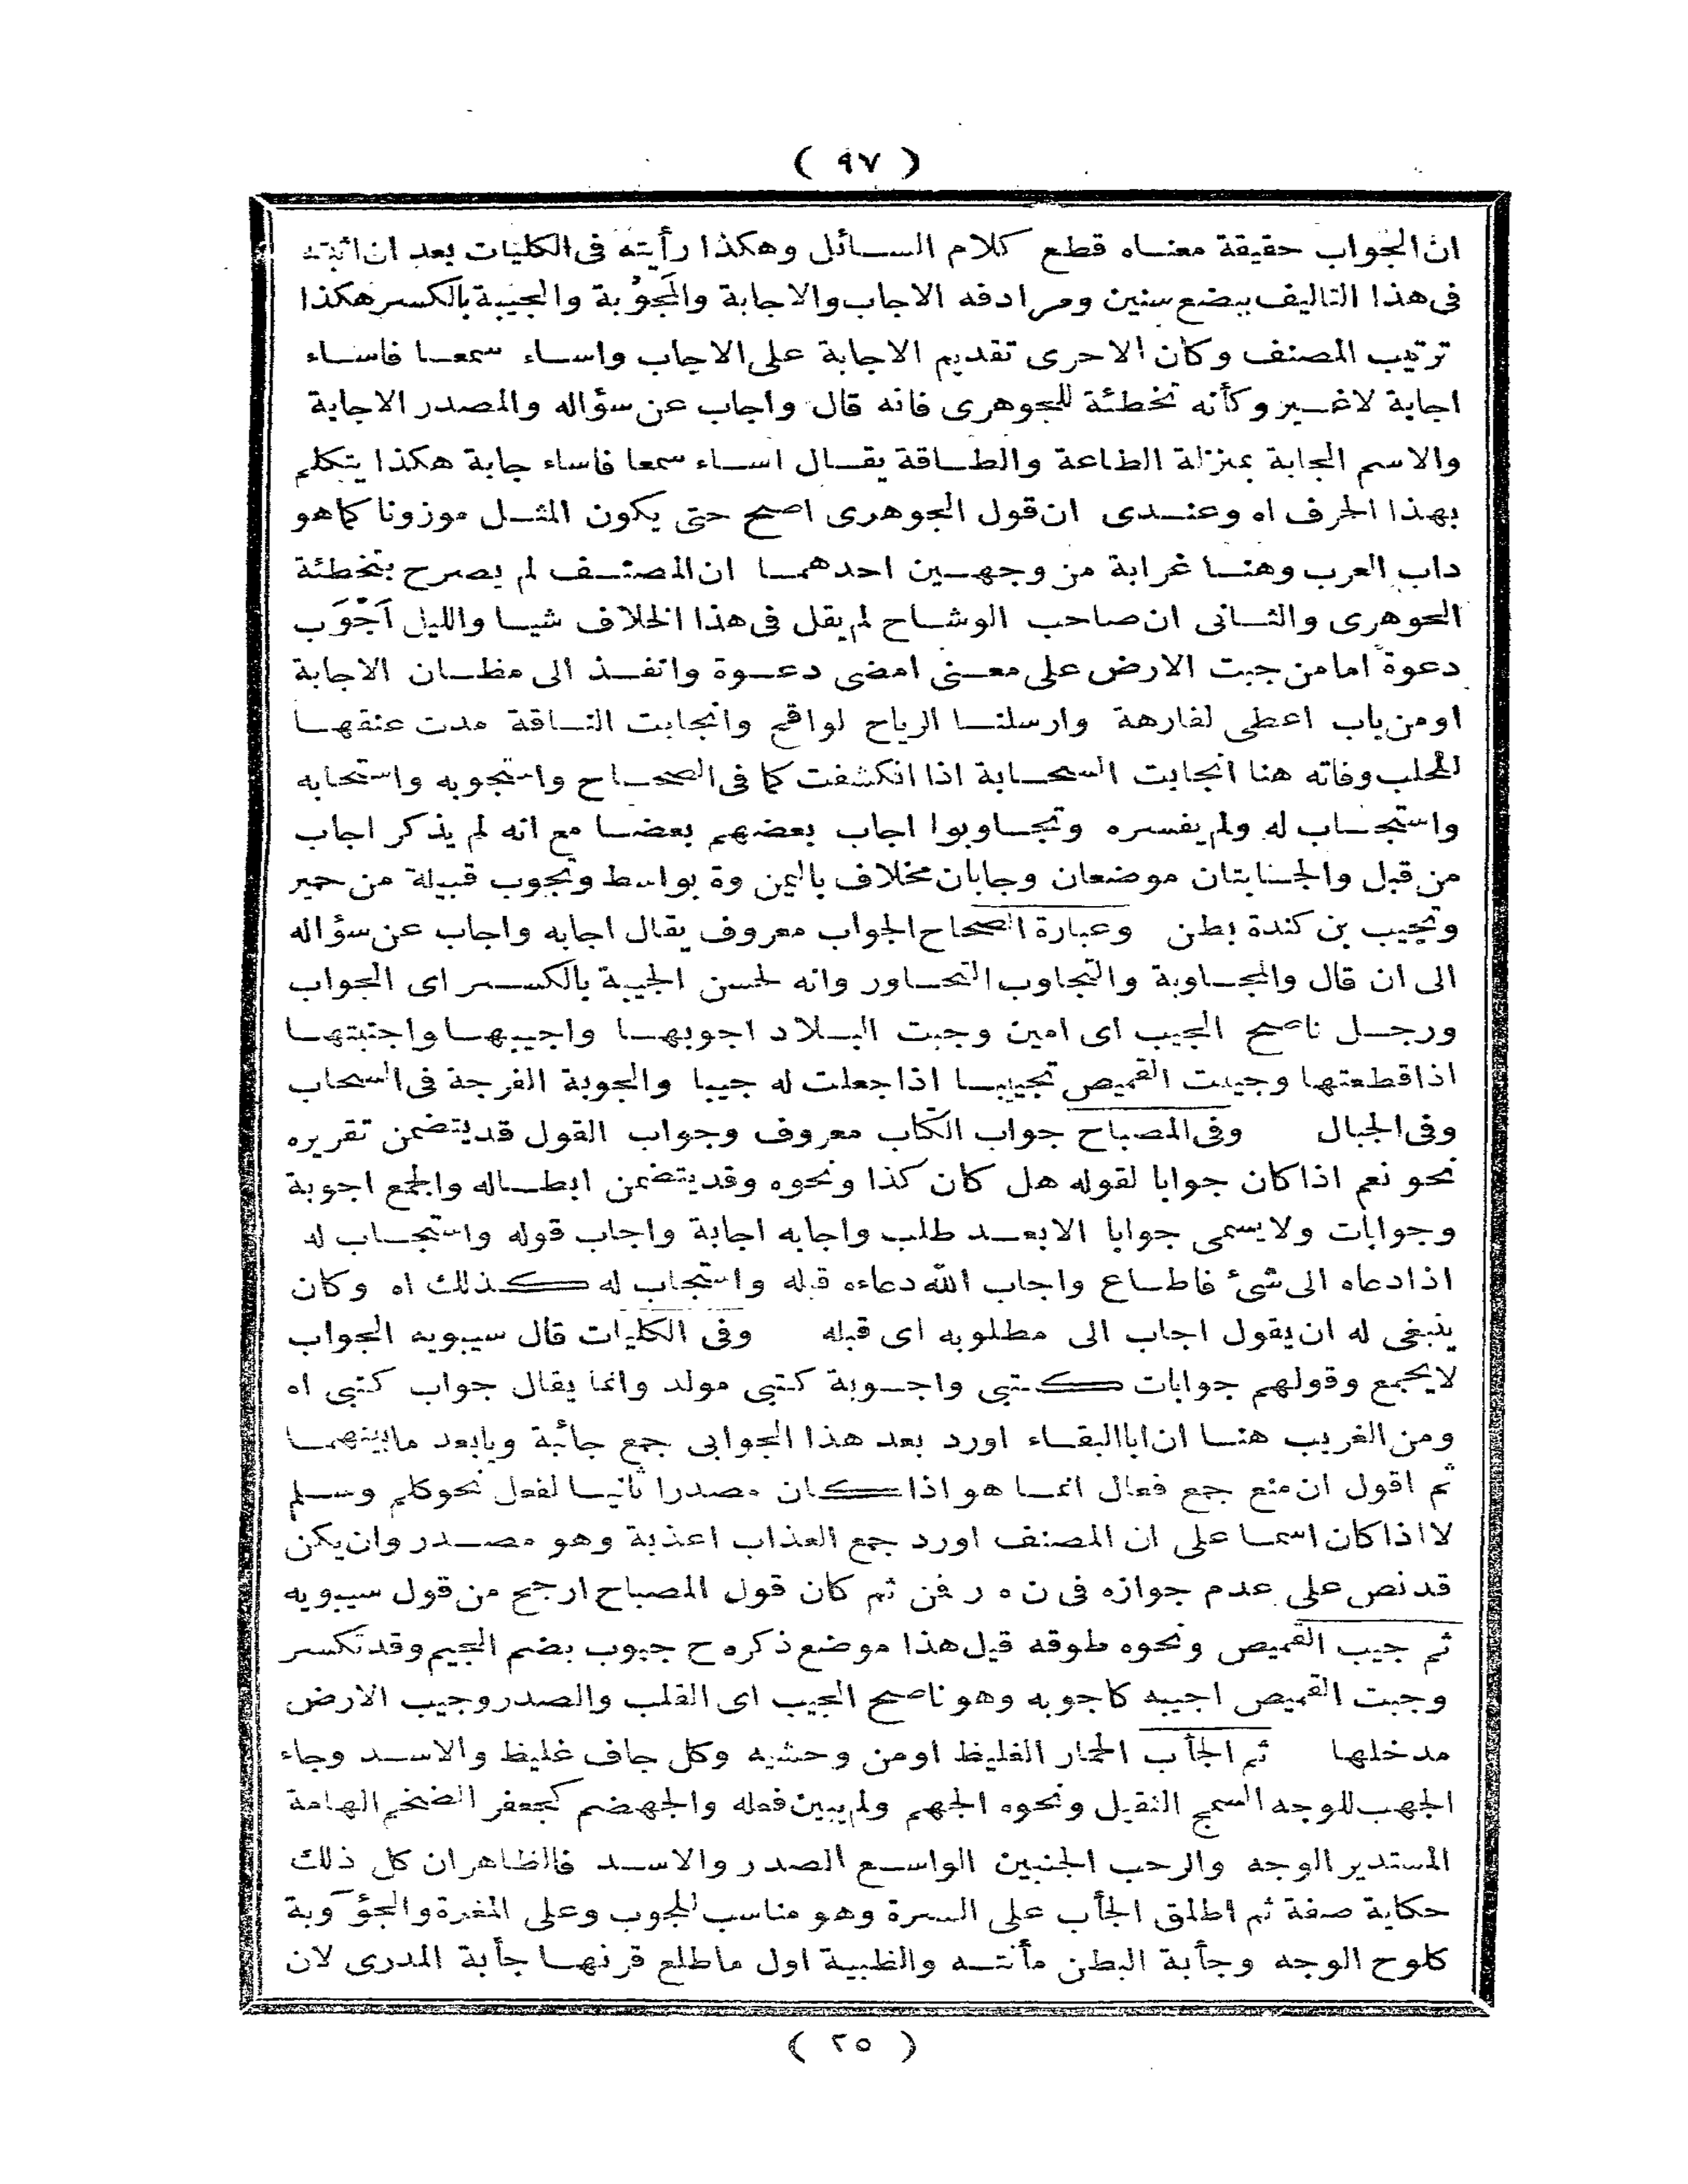 ( ٩٧ )
ان الجواب حقيقة معناه قطع كلام السائل وهكذا رأيته فى الكليات بعد ان اثبته
فى هذا التاليف ببضع سنين ومرادفه الاجاب والاجابة والمجوُبة والجيبة بالكسر هكذا
ترتيب المصنف وكان الاحرى تقديم الاجابة على الاجاب واساء سمعا فاساء
اجابة لاغير وكأنه تخطئة للجوهرى فانه قال واجاب عن سؤاله والمصدر الاجابة
والاسم الجابة بمنزلة الطاعة والطاقة يقال اساء سمعا فاساء جابة هكذا يتكلم
بهذا الحرف اه وعندى ان قول الجوهرى اصح حتى يكون المثل موزونا كما هو
داب العرب وهنا غرابة من وجهين احدهما ان المصنف لم يصرح بتخطئة
الجوهرى والثانى ان صاحب الوشاح لم يقل فى هذا الخلاف شيا والليل أَجْوَب
دعوة اما من جبت الارض على معنى امضى دعوة وانفذ الى مظان الاجابة
او من باب اعطى لفارهة وارسلنا الرياح لواقح وانجابت الناقة مدت عنقها
للحلب وفاته هنا انجابت السحابة اذا انكشفت كما فى الصحاح واستجوبه واستجابه
واستجاب له ولم يفسره وتجاوبوا اجاب بعضهم بعضا مع انه لم يذكر اجاب
من قبل والجنابتان موضعان وجابان مخلاف باليمن وة بواسط وتجوب قبيلة من حمير
وتجيب بن كندة بطن وعبارة الصحاح الجواب معروف يقال اجابه واجاب عن سؤاله
الى ان قال والمجاوبة والتجاوب التحاور وانه لحسن الجيبة بالكسر اى الجواب
ورجل ناصح الجيب اى امين وجبت البلاد اجوبها واجيبها واجتبتها
اذا قطعتها وجيبت القميص تجييبا اذا جعلت له جيبا والجوبة الفرجة فى السحاب
وفى الجبال وفى المصباح جواب الكتاب معروف وجواب القول قد يتضمن تقريره
نحو نعم اذا كان جوابا لقوله هل كان كذا ونحوه وقد يتضمن ابطاله والجمع اجوبة
وجوابات ولا يسمى جوابا الا بعد طلب واجابه اجابة واجاب قوله واستجاب له
اذا دعاه الى شئ فاطاع واجاب الله دعاءه قبله واستجاب له كذلك اه وكان
ينبغى له ان يقول اجاب الى مطلوبه اى قبله وفى الكليات قال سيبويه الجواب
لا يجمع وقولهم جوابات كتبى واجوبة كتبى مولد وانما يقال جواب كتبى اه
ومن الغريب هنا ان ابا البقاء اورد بعد هذا الجوابى جمع جائبة ويابعد ما بينهما
ثم اقول ان منع جمع فعال انما هو اذا كان مصدرا ثانيا لفعل نحو كلم وسلم
لا اذا كان اسما على ان المصنف اورد جمع العذاب اعذبة وهو مصدر وان يكن
قد نص على عدم جوازه فى ن ه ر فن ثم كان قول المصباح ارجح من قول سيبويه
ثم جيب القميص ونحوه طوقه قيل هذا موضع ذكره ح جيوب بضم الجيم وقد تكسر
وجبت القميص اجيبه كاجوبه وهو ناصح الجيب اى القلب والصدر وجيب الارض
مدخلها ثم الجأب الحمار الغليظ او من وحشيه وكل جاف غليظ والاسد وجاء
الجهب للوجه السمج الثقيل ونحوه الجهم ولم يبين فعله والجهضم كجعفر الضخم الهامة
المستدير الوجه والرحب الجنبين الواسع الصدر والاسد فالظاهر ان كل ذلك
حكاية صفة ثم اطلق الجأب على السرة وهو مناسب للجوب وعلى المغرة والجؤوبة
كلوح الوجه وجأبة البطن مأنته والظبية اول ما طلع قرنها جأبة المدرى لان
( ٢٥ )